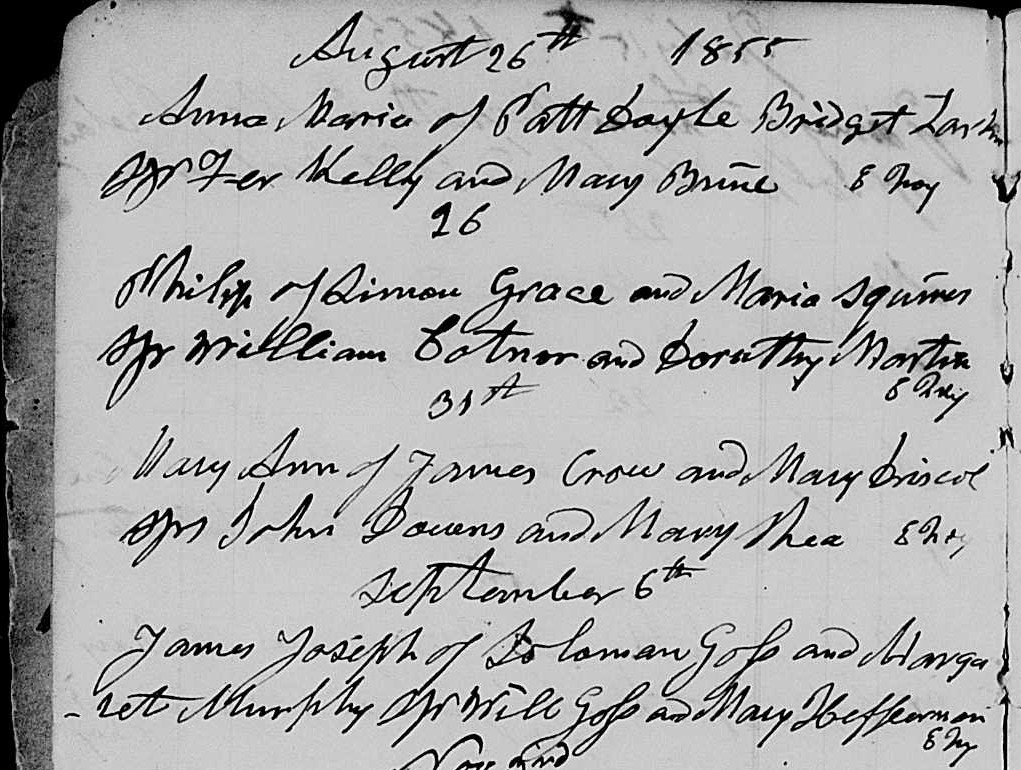 August 26th 1855
Anna Maria of Patt Doyle Bridget
Spr Ter Kelly and Mary Brine E Troy
26
Philip of Simon Grace and Maria Squires
Spr William and Dorothy Martin
E Troy
31th
Mary Ann of James Crow and Mary Driscol
Sprs John Dowens and Mary Shea E Troy
September 6th
James Joseph of Soloman Goss and Marga
-ret Murphy Spr Will Goss and Mary Hefferman
E Ty